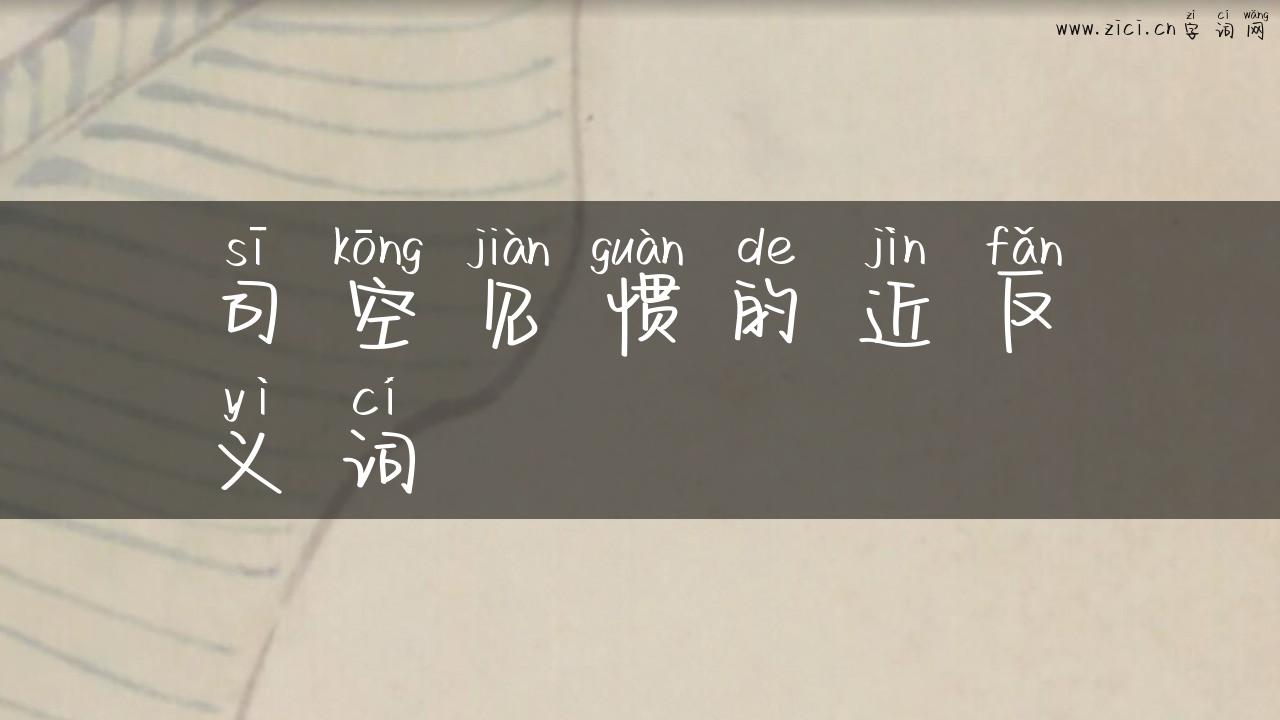 zì cí wǎng
www.zici.cn 字词网
sī kōng jiàn guàn de jìn fǎn
司空见惯的近反
yì cí
义词